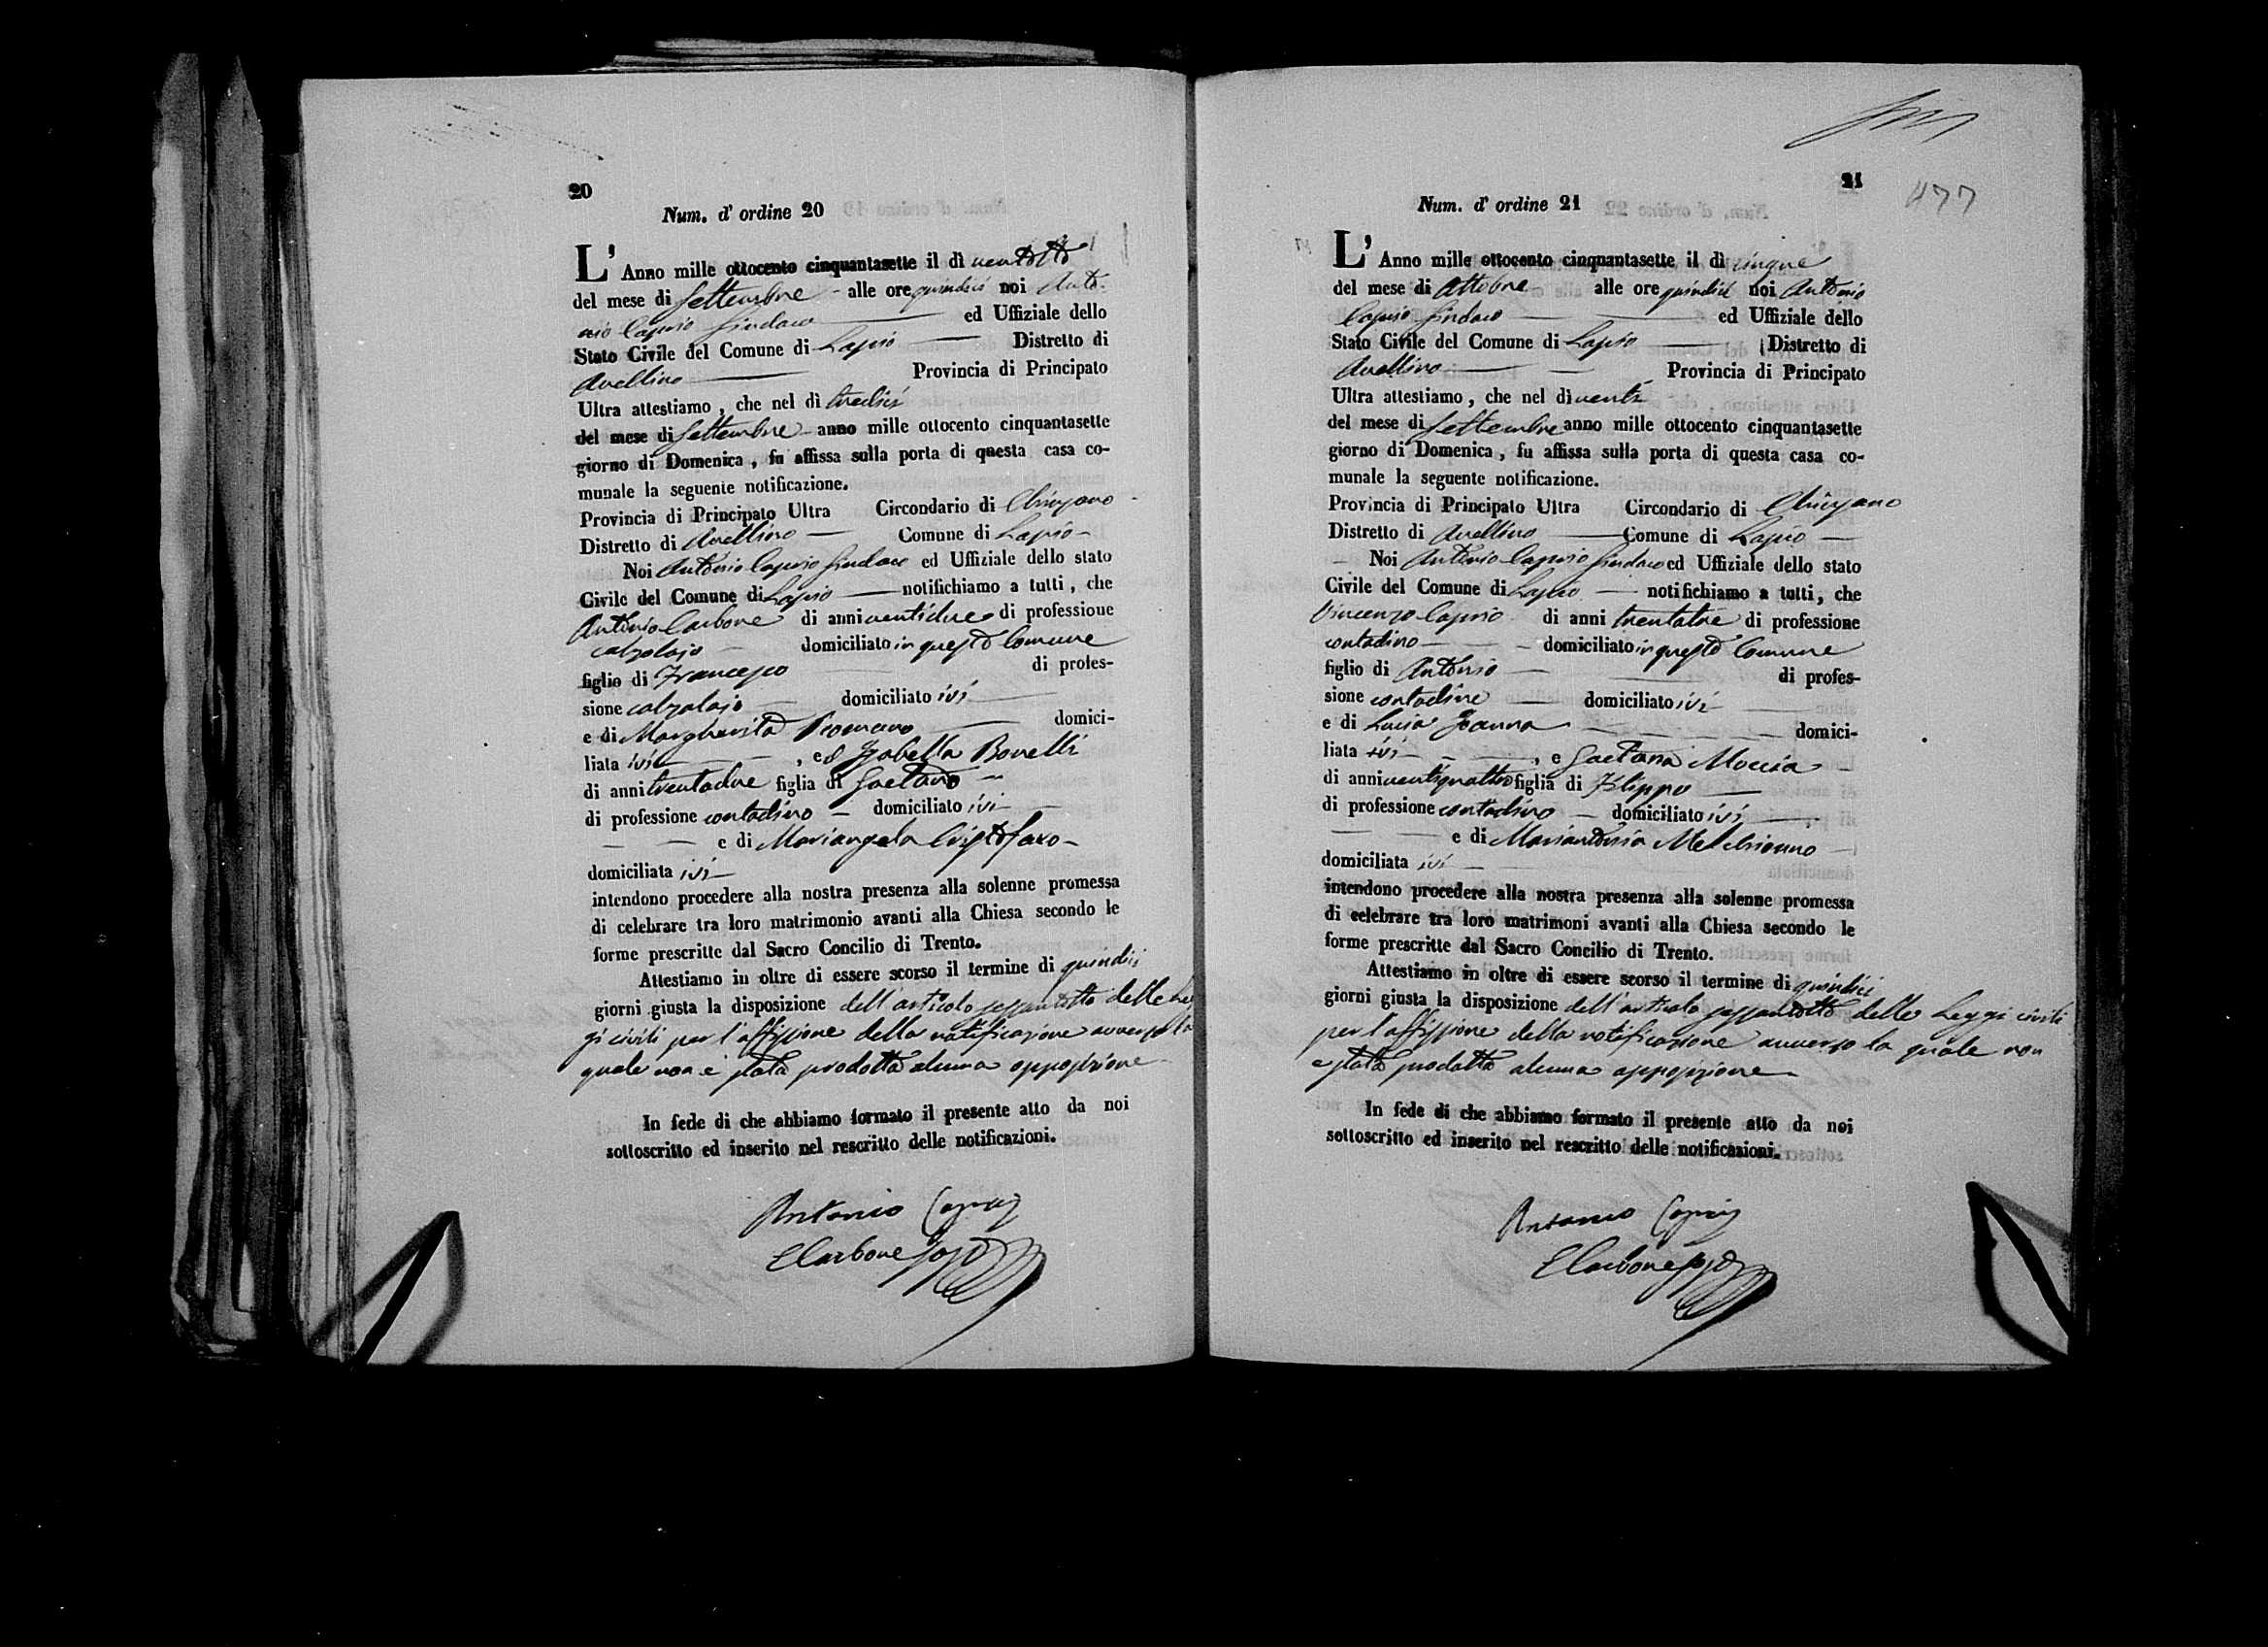 20
Num. d' ordine 20
L' Anno mille ottocento cinquantasette il dì ventotto
del mese di Settembre alle ore quindici noi Anto-
nio Caprio Sindaco ed Uffiziale dello
Stato Civile del Comune di Lapio Distretto di
Avellino Provincia di Principato
Ultra attestiamo, che nel dì tredici
del mese di Settembre anno mille ottocento cinquantasette
giorno di Domenica, fu affissa sulla porta di questa casa co-
munale la seguente notificazione.
Provincia di Principato Ultra Circondario di Chiusano
Distretto di Avellino Comune di Lapio
Noi Antonio Caprio Sindaco ed Uffiziale dello stato
Civile del Comune di Lapio notifichiamo a tutti, che
Antonio Carbone di anni ventidue di professione
calzolajo domiciliato in questo Comune
figlio di Francesco di profes-
sione calzolajo domiciliato ivi
e di Margherita Romano domici-
liata ivi, ed Isabella Bonelli
di anni trentadue figlia di Gaetano
di professione contadino domiciliato ivi
e di Mariangela Cristofaro
domiciliata ivi
intendono procedere alla nostra presenza alla solenne promessa
di celebrare tra loro matrimonio avanti alla Chiesa secondo le
forme prescritte dal Sacro Concilio di Trento.
Attestiamo in oltre di essere scorso il termine di quindici
giorni giusta la disposizione dell'articolo sessantotto delle Leg
gi civili per l'affissione della notificazione avverso la
quale non è stata prodotta alcuna opposizione
In fede di che abbiamo formato il presente atto da noi
sottoscritto ed inserito nel rescritto delle notificazioni.
Antonio Caprio
E Carbone
21
477
Num. d' ordine 21
L' Anno mille ottocento cinquantasette il dì cinque
del mese di Ottobre alle ore quindici noi Antonio
Caprio Sindaco ed Uffiziale dello
Stato Civile del Comune di Lapio Distretto di
Avellino Provincia di Principato
Ultra attestiamo, che nel dì venti
del mese di Settembre anno mille ottocento cinquantasette
giorno di Domenica, fu affissa sulla porta di questa casa co-
munale la seguente notificazione.
Provincia di Principato Ultra Circondario di Chiusano
Distretto di Avellino Comune di Lapio
Noi Antonio Caprio Sindaco ed Uffiziale dello stato
Civile del Comune di Lapio notifichiamo a tutti, che
Vincenzo Caprio di anni trentatre di professione
contadino domiciliato in questo Comune
figlio di Antonio di profes-
sione contadino domiciliato ivi
e di Lucia Joanna domici-
liata ivi, e Gaetana Moccia
di anni ventiquattro figlia di Filippo
di professione contadino domiciliato ivi
e di Mariantonia Melchionno
domiciliata ivi
intendono procedere alla nostra presenza alla solenne promessa
di celebrare tra loro matrimoni avanti alla Chiesa secondo le
forme prescritte dal Sacro Concilio di Trento.
Attestiamo in oltre di essere scorso il termine di quindici
giorni giusta la disposizione dell'articolo sessantotto delle Leggi civili
per l'affissione della notificazione avverso la quale non
e stata prodotta alcuna opposizione
In fede di che abbiamo formato il presente atto da noi
sottoscritto ed inserito nel rescritto delle notificazioni.
Antonio Caprio
E Carbone